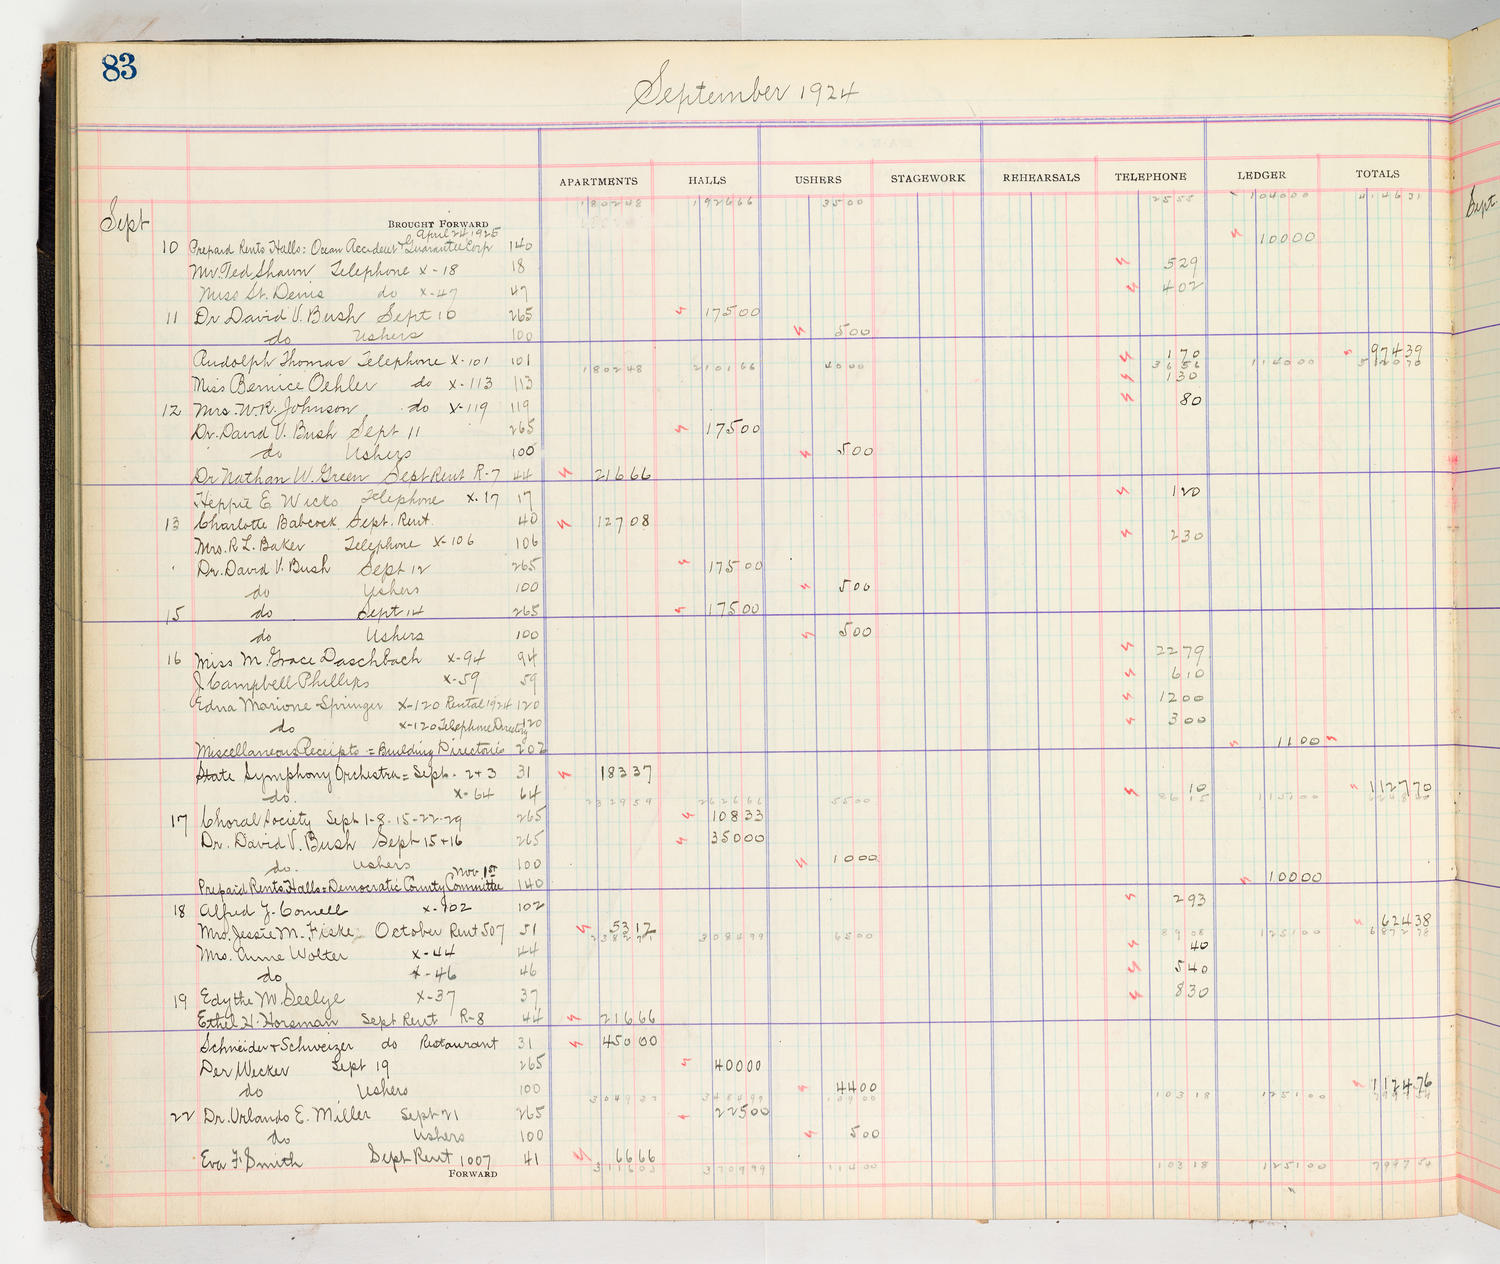 83
September 1924
APARTMENTS HALLS USHERS STAGEWORK REHEARSALS TELEPHONE LEDGER TOTALS
Sept BROUGHT FORWARD 180248 192666 3500 2555 104000 414631
April 24 1925
10 Prepaid Rents Halls: Ocean Accident & Guarantee Corp 140 10000
Mr. Ted Shawn Telephone X-18 18 529
Miss St. Denis do X-47 47 402
11 Dr David V. Bush Sept 10 265 17500
do Ushers 100 500
Rudolph Thomas Telephone X-101 101 170 97439
180248 210166 4000 3656 114000
Miss Bernice Oehler do X-113 113 130
12 Mrs. W.R. Johnson do X-119 119 80
Dr. David V. Bush Sept 11 265 17500
do Ushers 100 500
Dr Nathan W. Green Sept Rent R-7 44 21666
Heppie E Wicks Telephone X-17 17 120
13 Charlotte Babcock Sept. Rent 40 12708
Mrs. R L. Baker Telephone X-106 106 230
Dr. David V. Bush Sept 12 265 17500
do Ushers 100 500
15 do Sept 14 265 17500
do Ushers 100 500
16 Miss M. Grace Daschbach X-94 94 2279
J. Campbell Phillips X-59 59 610
Edna Marione Springer X-120 Rental 1924 120 1200
do X-120 Telephone Directory 120 300
Miscellaneous Receipts = Building Directories 202 1100
State Symphony Orchestra = Sept. 2+3 31 18337
do. X-64 64 10 112770
232959 262666 5500 8615 115100
17 Choral Society Sept 1-8-15-22-29 265 10833
Dr. David V. Bush Sept 15+16 265 35000
do. Ushers 100 1000
Nov 1st
Prepaid Rents Halls = Democratic County Committee 140 10000
18 Alfred J. Cornell X-102 102 293
Mrs. Jessie M. Fiske October Rent 507 51 5312 62438
238271 308499 6500 8908 125100 687278
Mrs. Anne Wolter X-44 44 40
do X-46 46 540
19 Edythe M. Seelye X-37 37 830
Ethel H. Horsman Sept Rent R-8 44 21666
Schneider + Schweizer do Restaurant 31 45000
Der Wecker Sept 19 265 40000
do Ushers 100 4400 112476
304937 348499 10900 10318 125100
22 Dr. Orlando E. Miller Sept 21 265 22500
do Ushers 100 500
Eva F. Smith Sept Rent 1007 41 6666
FORWARD 311603 370999 11400 10318 125100